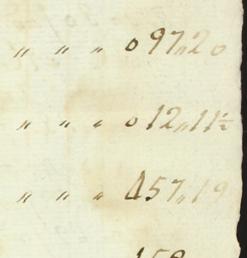 " " " 0 97,,20
" " " 0 12,,11½
" " " 457,,19
158